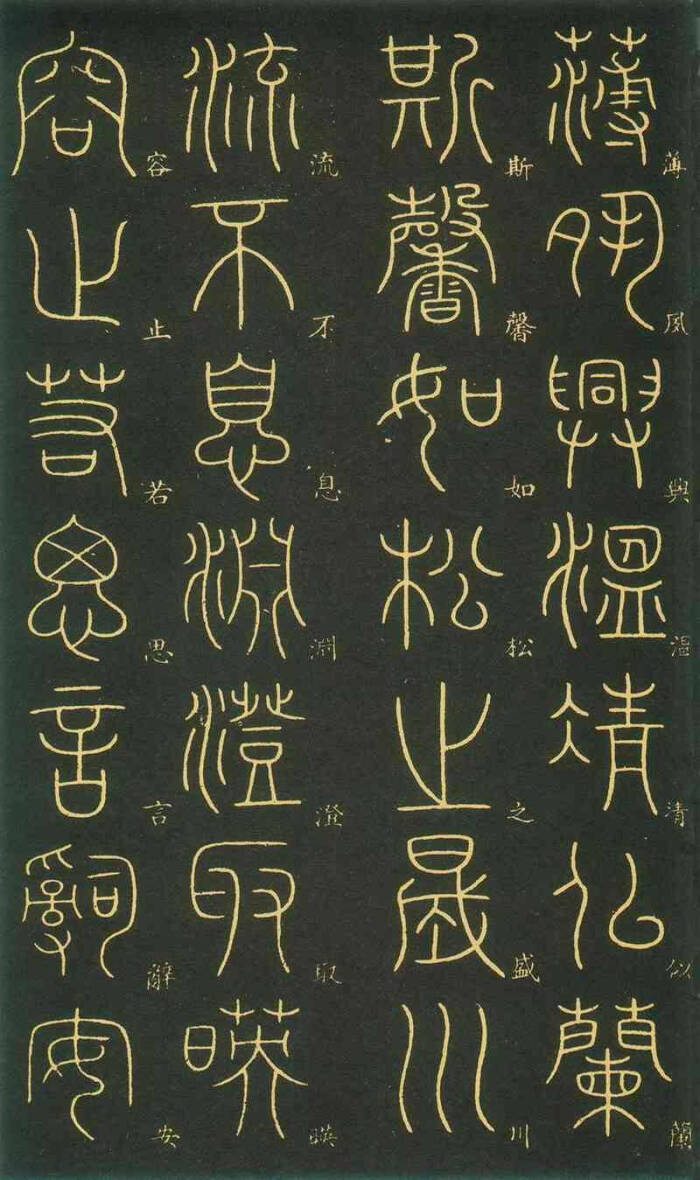 薄夙興溫清似蘭
斯馨如松之盛川
流不息淵澄取暎
容止若思言辭安